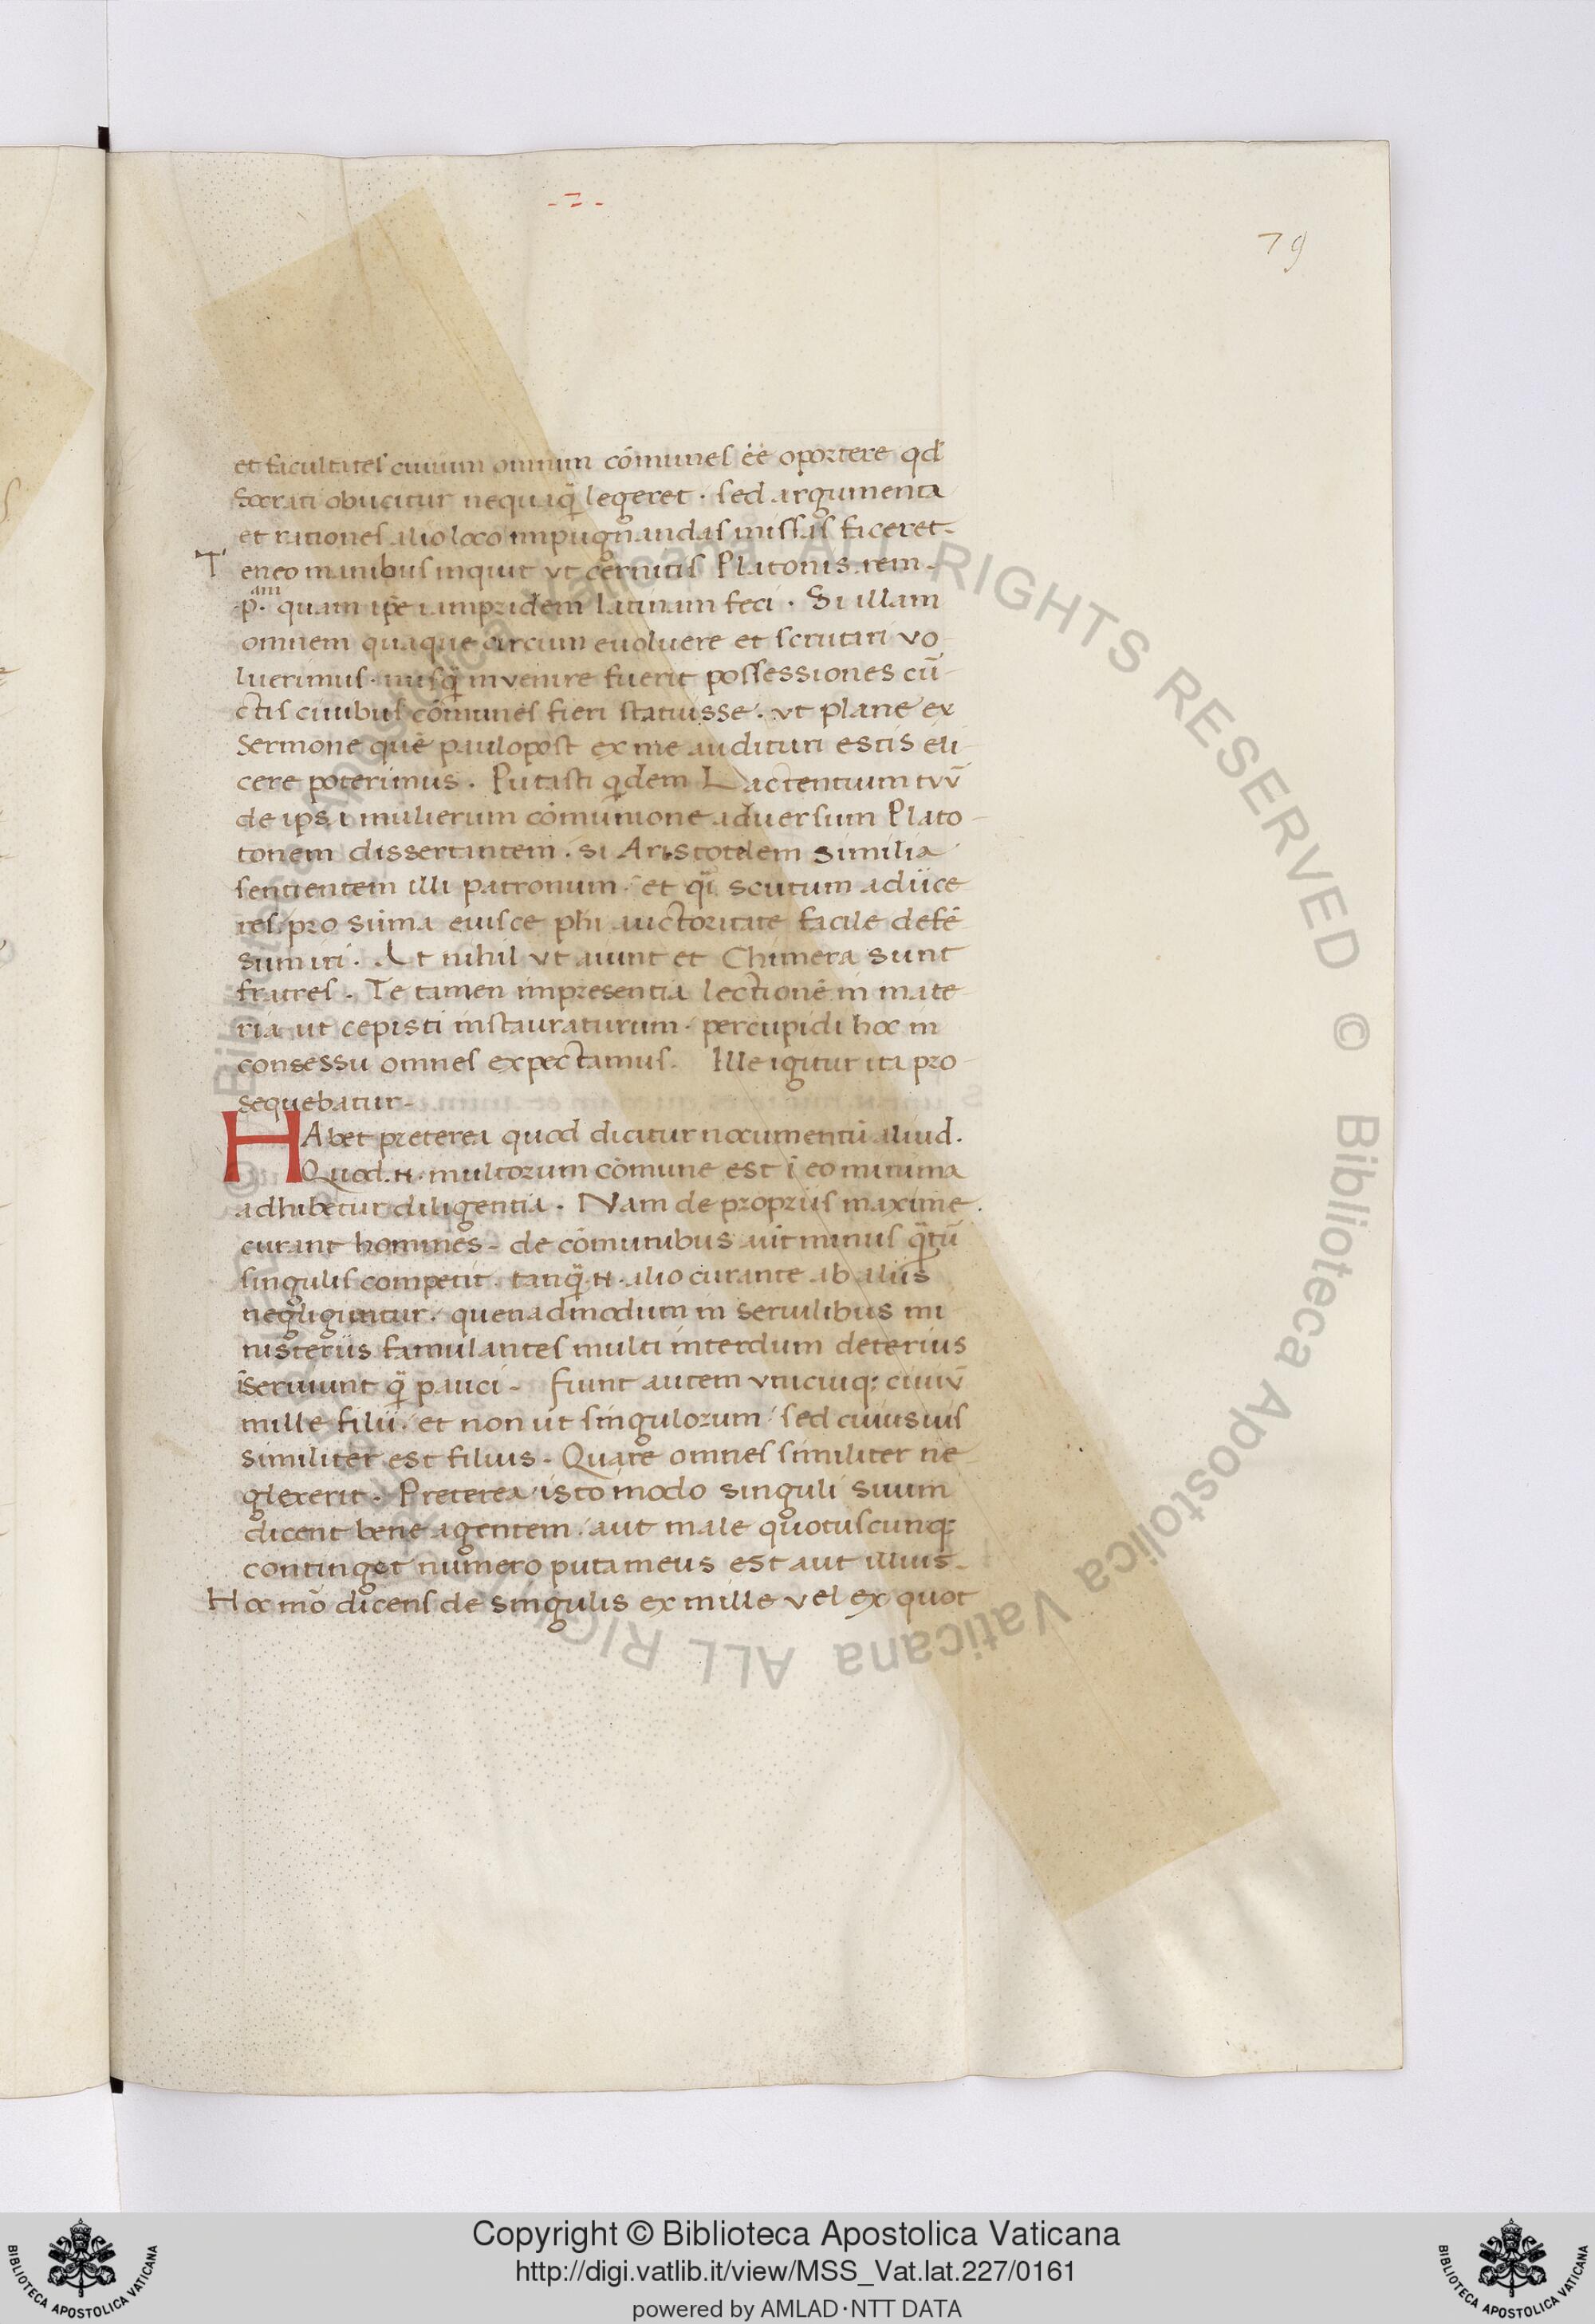 -2-
79
et facultates civium omnium cōmunes ēē oportere qđ
Socrati obiicitur nequaq̄ legeret . sed argumenta
et rationes alio loco impugnandas missas faceret-
Teneo manibus inquit vt cernitis Platonis rem-
.p.am quam ip̄e iampridem latinam feci . Si illam
omnem quaque circum evoluere et scrutari vo
luerimus . nusq̄ invenire fuerit possessiones cū-
ctis civibus cōmunes fieri statuisse . vt plane ex
Sermone quē paulopost ex me audituri estis eli
cere poterimus . Putasti q̇dem Lactentium tuū
de ipsa mulierum cōmunione adversum Plato-
tonem dissertantem . si Aristotelem similia
sentientem illi patronum . et q̄i scutum adiice
res pro sūma eiusce phi auctoritate facile defē
sum iri . At nihil vt aiunt et Chimera sunt
fratres . Te tamen impresentia lectionē in mate
ria ut cepisti instauraturum . percupidi hoc in
consessu omnes expectamus . Ille igitur ita pro
sequebatur-
HAbet preterea quod dicitur nocumentū aliud.
Quod .N. multorum cōmune est ī eo minima
adhibetur diligentia . Nam de propriis maxime.
curant homines - de cōmunibus aūt minus q̄tū
singulis competit . tanq̄ .N. alio curante ab aliis
negligantur . quenadmodum in servilibus mi
nisteriis famulantes multi interdum deterius
īserviunt q̄ pauci - fiunt autem vnicuiq; civiū
mille filii . et non ut singulorum / sed cuiusvis
similiter est filius - Quare omnes similiter ne
glexerit . Preterea isto modo singuli suum
dicent bene agentem . aut male quotuscunq;
continget numero puta meus est aut illius-
Hoc mō dicens de singulis ex mille vel ex quot
Copyright © Biblioteca Apostolica Vaticana
http://digi.vatlib.it/view/MSS_Vat.lat.227/0161
powered by AMLAD·NTT DATA
BIBLIOTECA APOSTOLICA VATICANA
BIBLIOTECA APOSTOLICA VATICANA
© Biblioteca Apostolica Vaticana ALL RIGHTS RESERVED © Biblioteca Apostolica Vaticana ALL RIG